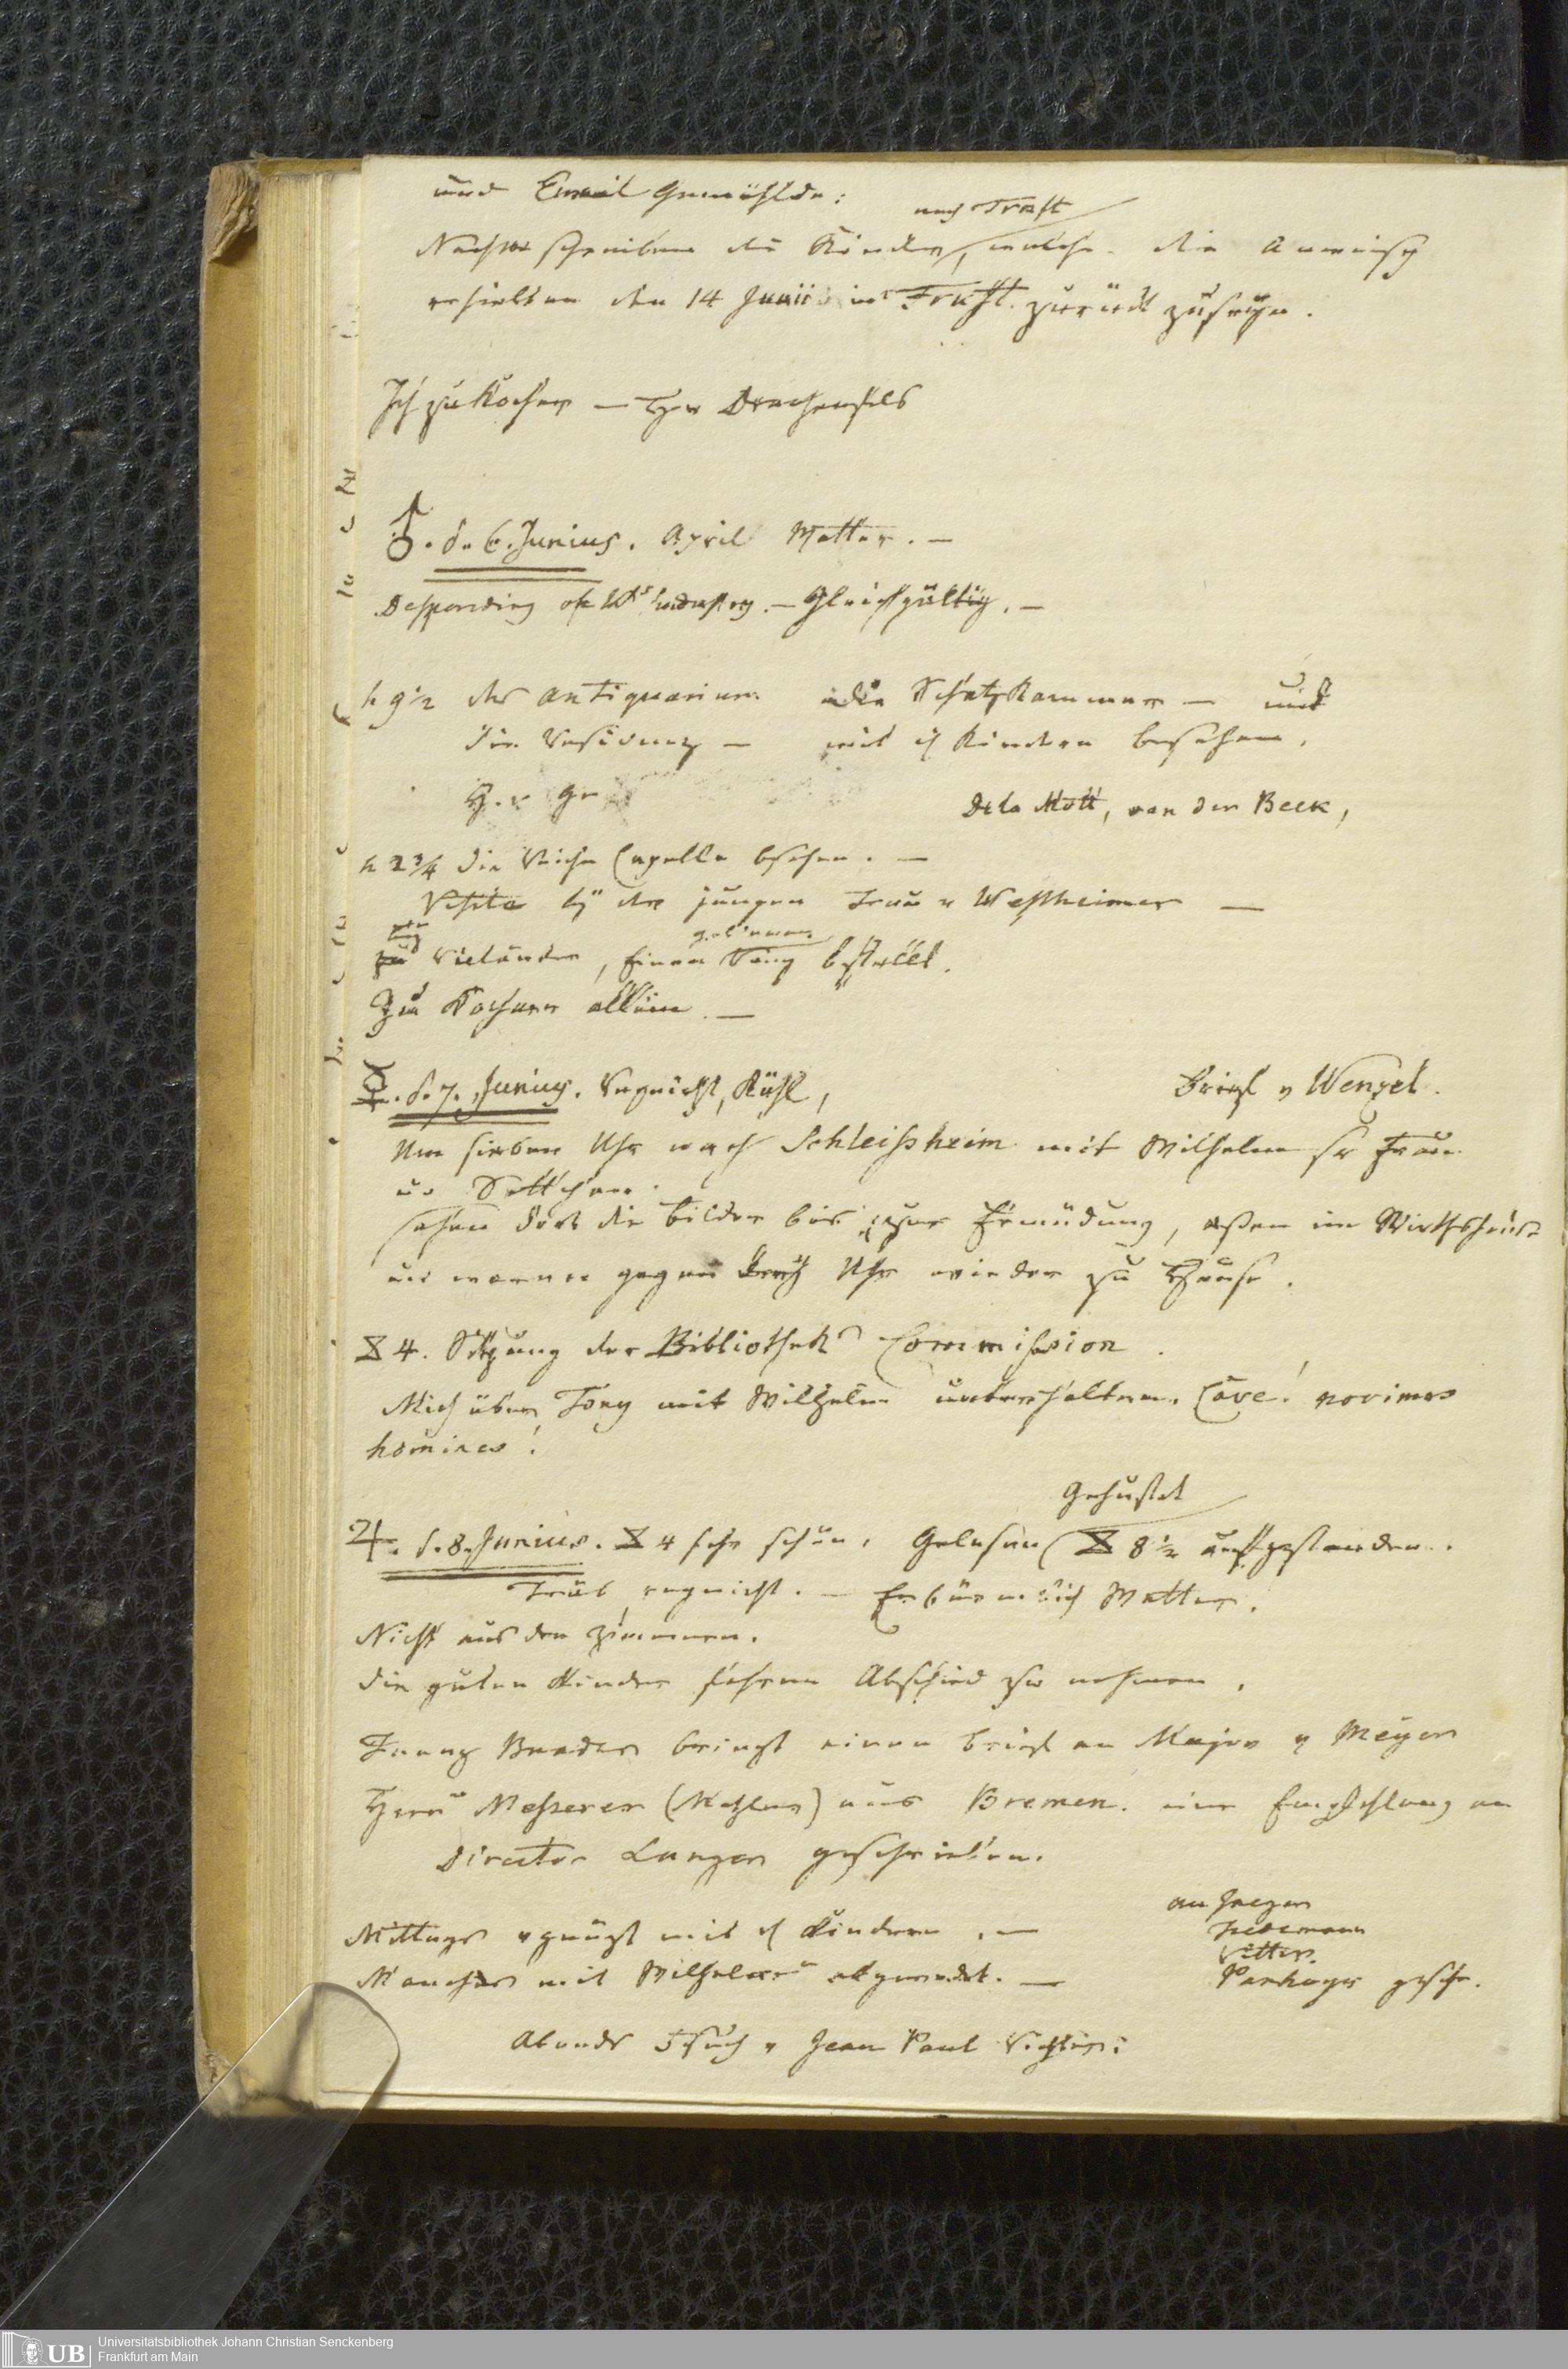 und Email Gemählde:
nach Frkft
Nachts schreiben die Kinder, welche die Anweisg
erhielten den 14 Junii in Frkft. zurück zuseyn.
Ich zu Kochers — Hr v Drachenfels
♂. d. 6. Junius. April Wetter. —
Desponding of Ws industry. — Gleichgültig. —
h 9 1/2 das Antiquarium die Schatzkammer — und
die Residenz — mit d Kindern besehen.
De la Mott, van der Beck,
h 2 3/4 die Reiche Capelle besehen. —
Visite by der jungen Frau v Westheimer —
zu Vieländer, Einen goldenen Ring bestellt.
Zu Kochers allein. —
☿. d. 7. Junius. Regnicht, Kühl, Brief v Wenzel.
Um sieben Uhr nach Schleißheim mit Wilhelm sr Frau
u. Settchen.
sahen dort die Bilder bis zur Ermüdung, aßen im Wirthshause
und waren gegen drey Uhr wieder zu Hause.
⧖ 4. Sitzung der Bibliothek Commission.
Mich über Tony mit Wilhelm unterhalten. Cave! novimus
homines!
Gehustet
♃. d. 8. Junius. ⧖ 4 sehr schön. Gelesen ⧖ 8 1/2 aufgestanden.
Trüb regnicht. — Erbärmlich Wetter.
Nicht aus den Zimmern.
Die guten Kinder fahren Abschied zu nehmen.
Fanny bringt einen Brief an Major v Meyer
Herrn Messerer (Mahler) aus Bremen. eine Empfehlung an
Director Langer geschrieben.
an Jaeger
Mittags vergnügt mit d Kindern. — Tiedemann
Vetter
Manches mit Wilhelm abgeredet. — geschr.
Abends Besuch v Jean Paul Richter:
Universitätsbibliothek Johann Christian Senckenberg
Frankfurt am Main
UB